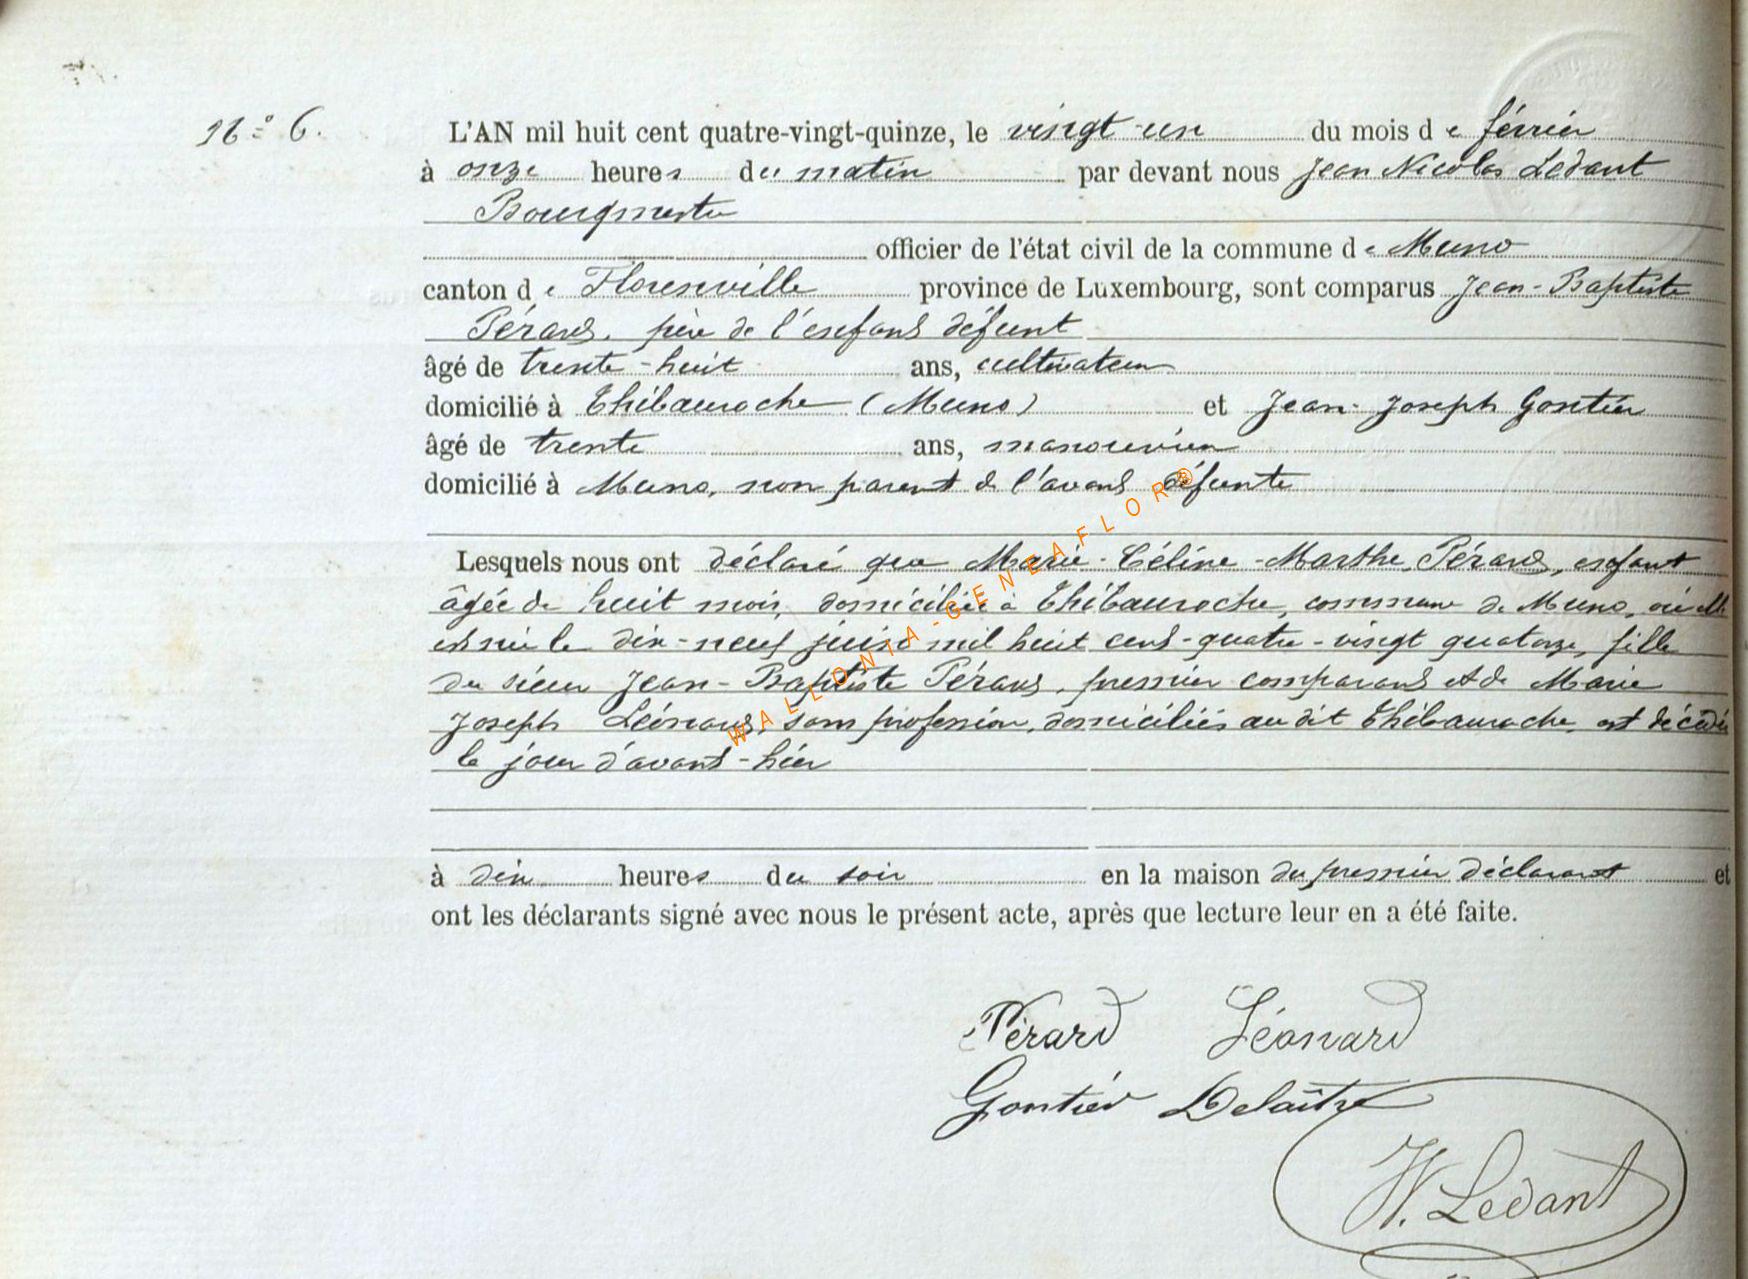 N° 6.
L'AN mil huit cent quatre-vingt-quinze, le vingt-un du mois de février
à onze heures du matin par devant nous Jean Nicolas Ledant
Bourgmestre
officier de l'état civil de la commune de Muno
canton de Florenville province de Luxembourg, sont comparus Jean-Baptiste
Pérard, père de l'enfant défunt
âgé de trente-huit ans, cultivateur
domicilié à Thibauroche (Muno) et Jean-Joseph Gontier
âgé de trente ans, manouvrier
domicilié à Muno, non parent de l'avant défunte
Lesquels nous ont déclaré que Marie-Céline-Marthe Pérard, enfant
âgée de huit mois, domiciliée à Thibauroche, commune de Muno, où elle
est née le dix-neuf juin mil huit cent-quatre-vingt quatorze, fille
du sieur Jean-Baptiste Pérard, premier comparant et de Marie
Joseph Léonard, sans profession, domiciliés au dit Thibauroche, est décédée
le jour d'avant-hier
à dix heures du soir en la maison du premier déclarant et
ont les déclarants signé avec nous le présent acte, après que lecture leur en a été faite.
Pérard Léonard
Gontier Delaître
N. Ledant
WALLONIA-GENEAFLOR®